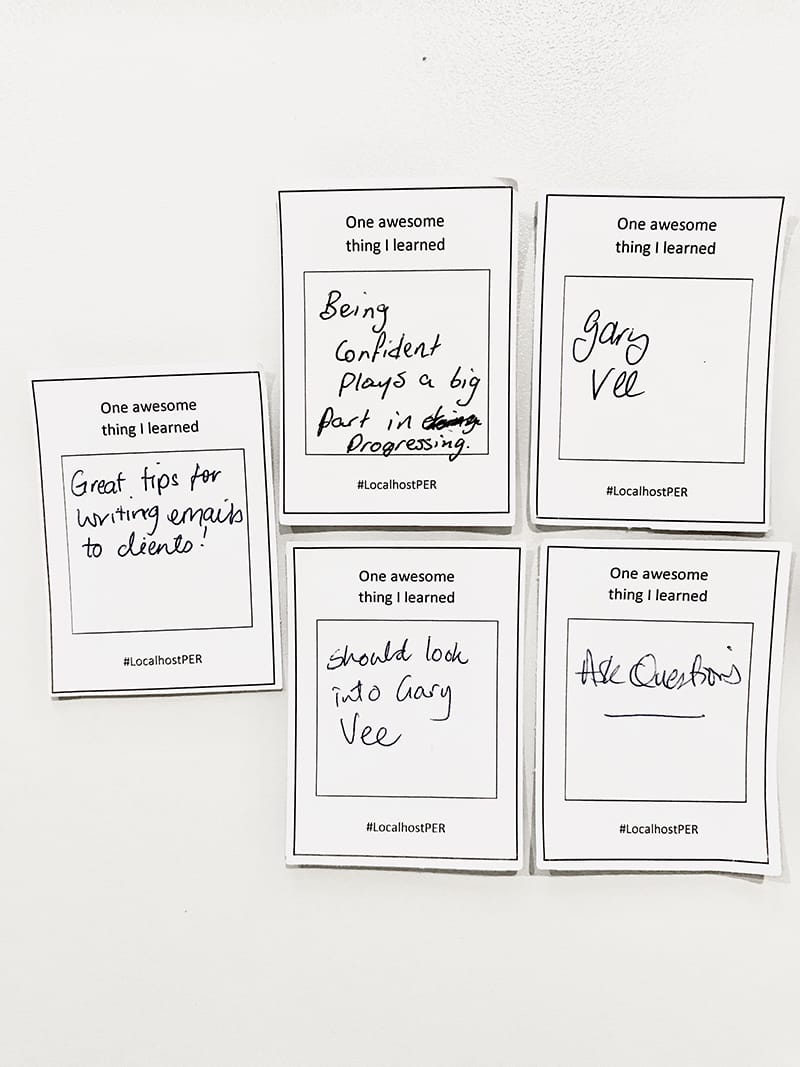 One awesome
thing I learned
Great tips for
writing emails
to clients!
#LocalhostPER
One awesome
thing I learned
Being
Confident
plays a big
part in
Progressing.
#LocalhostPER
One awesome
thing I learned
Gary
Vee
#LocalhostPER
One awesome
thing I learned
should look
into Gary
Vee
#LocalhostPER
One awesome
thing I learned
Ask Questions
#LocalhostPER